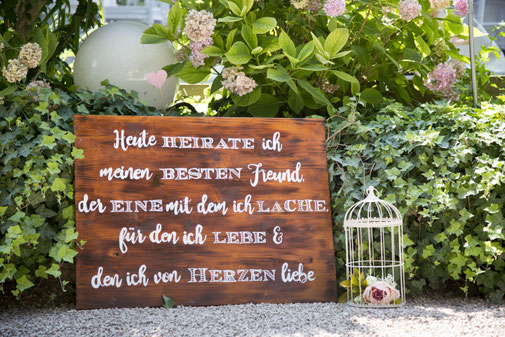 Heute HEIRATE ich
meinen BESTEN Freund,
der EINE mit dem ich LACHE,
für den ich LEBE &
den ich von HERZEN liebe